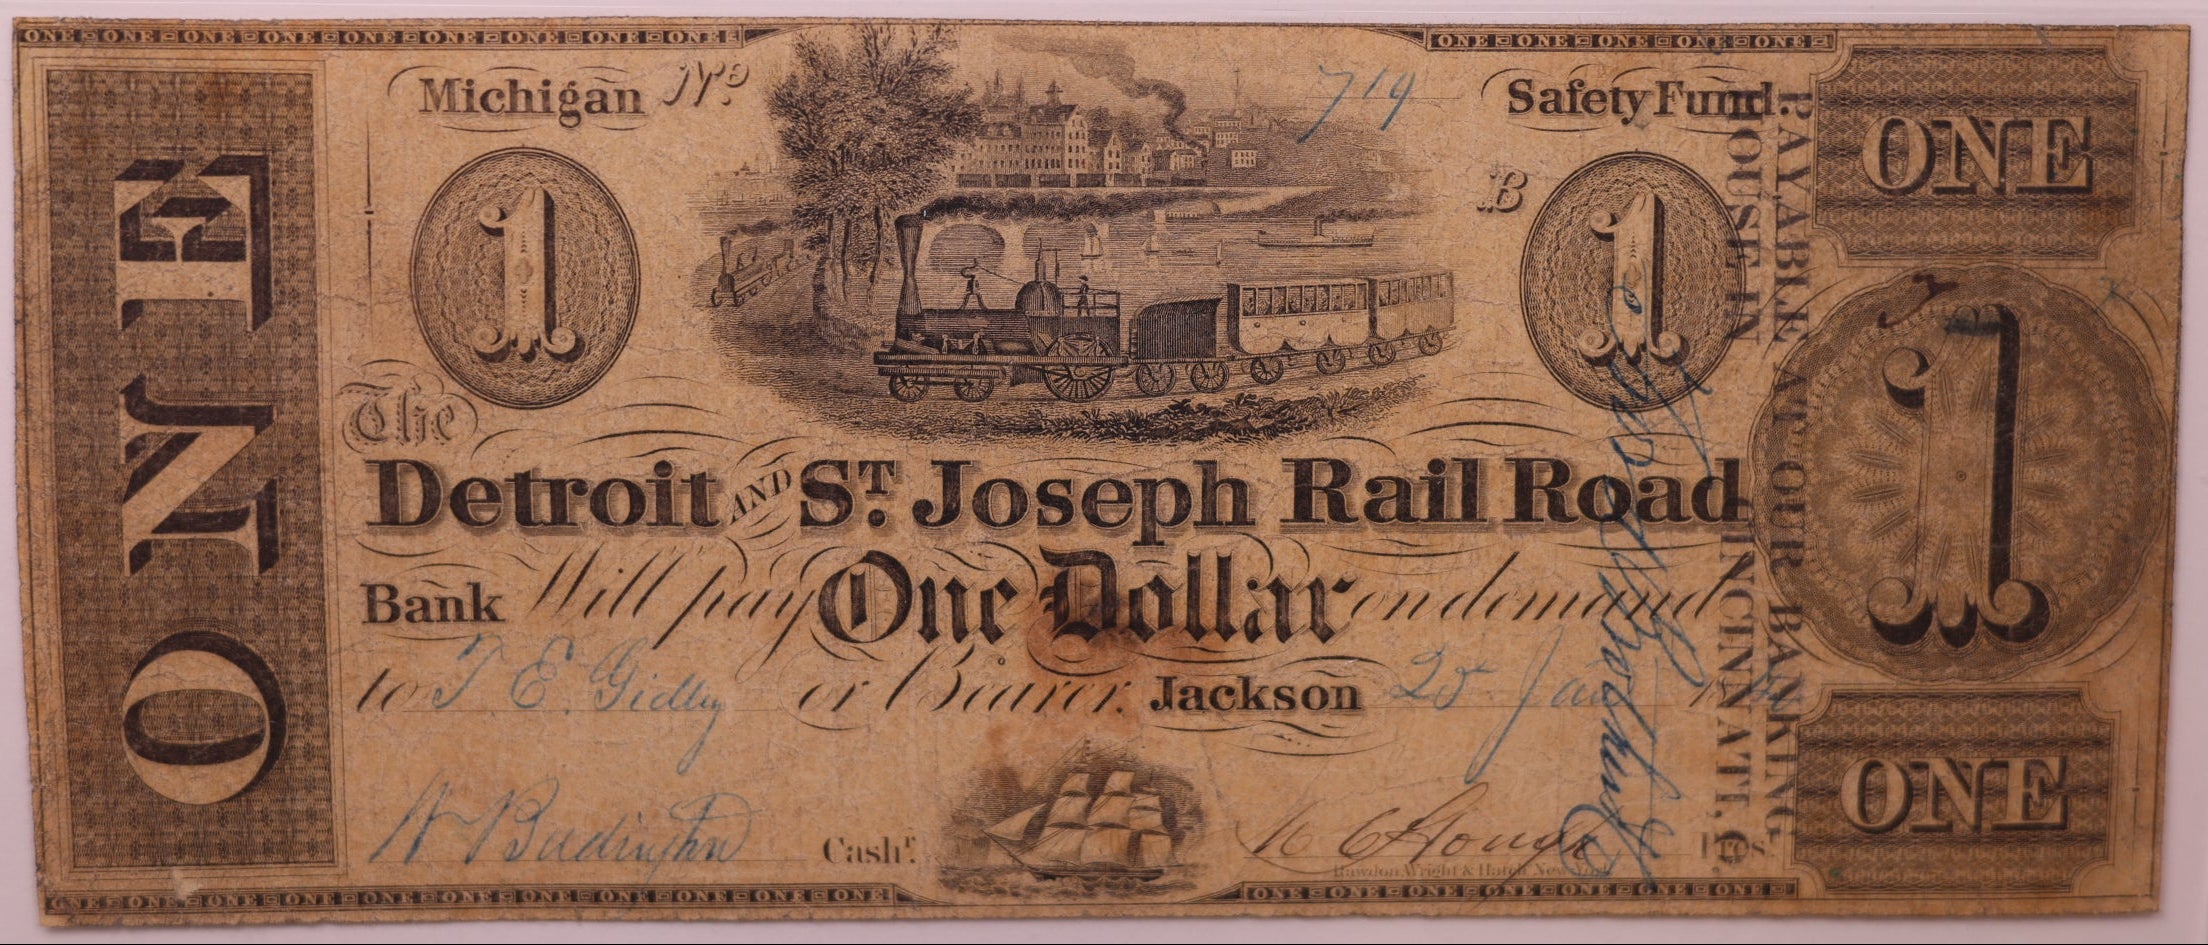 ONE ONE ONE ONE ONE ONE ONE ONE ONE
ONE ONE ONE ONE ONE
ONE
Michigan No. 719 Safety Fund.
1
B
1
ONE
1
ONE
The
Detroit AND ST. Joseph Rail Road
Bank Will pay One Dollar on demand
to T. E. Gidley or Bearer. Jackson 25 Jan
Cashr.
Pres.
Rawdon Wright & Hatch New
PAYABLE AT OUR BANKING
HOUSE IN CINCINNATI, O.
ONE ONE ONE ONE ONE ONE ONE ONE ONE ONE ONE
ONE ONE ONE ONE ONE ONE ONE